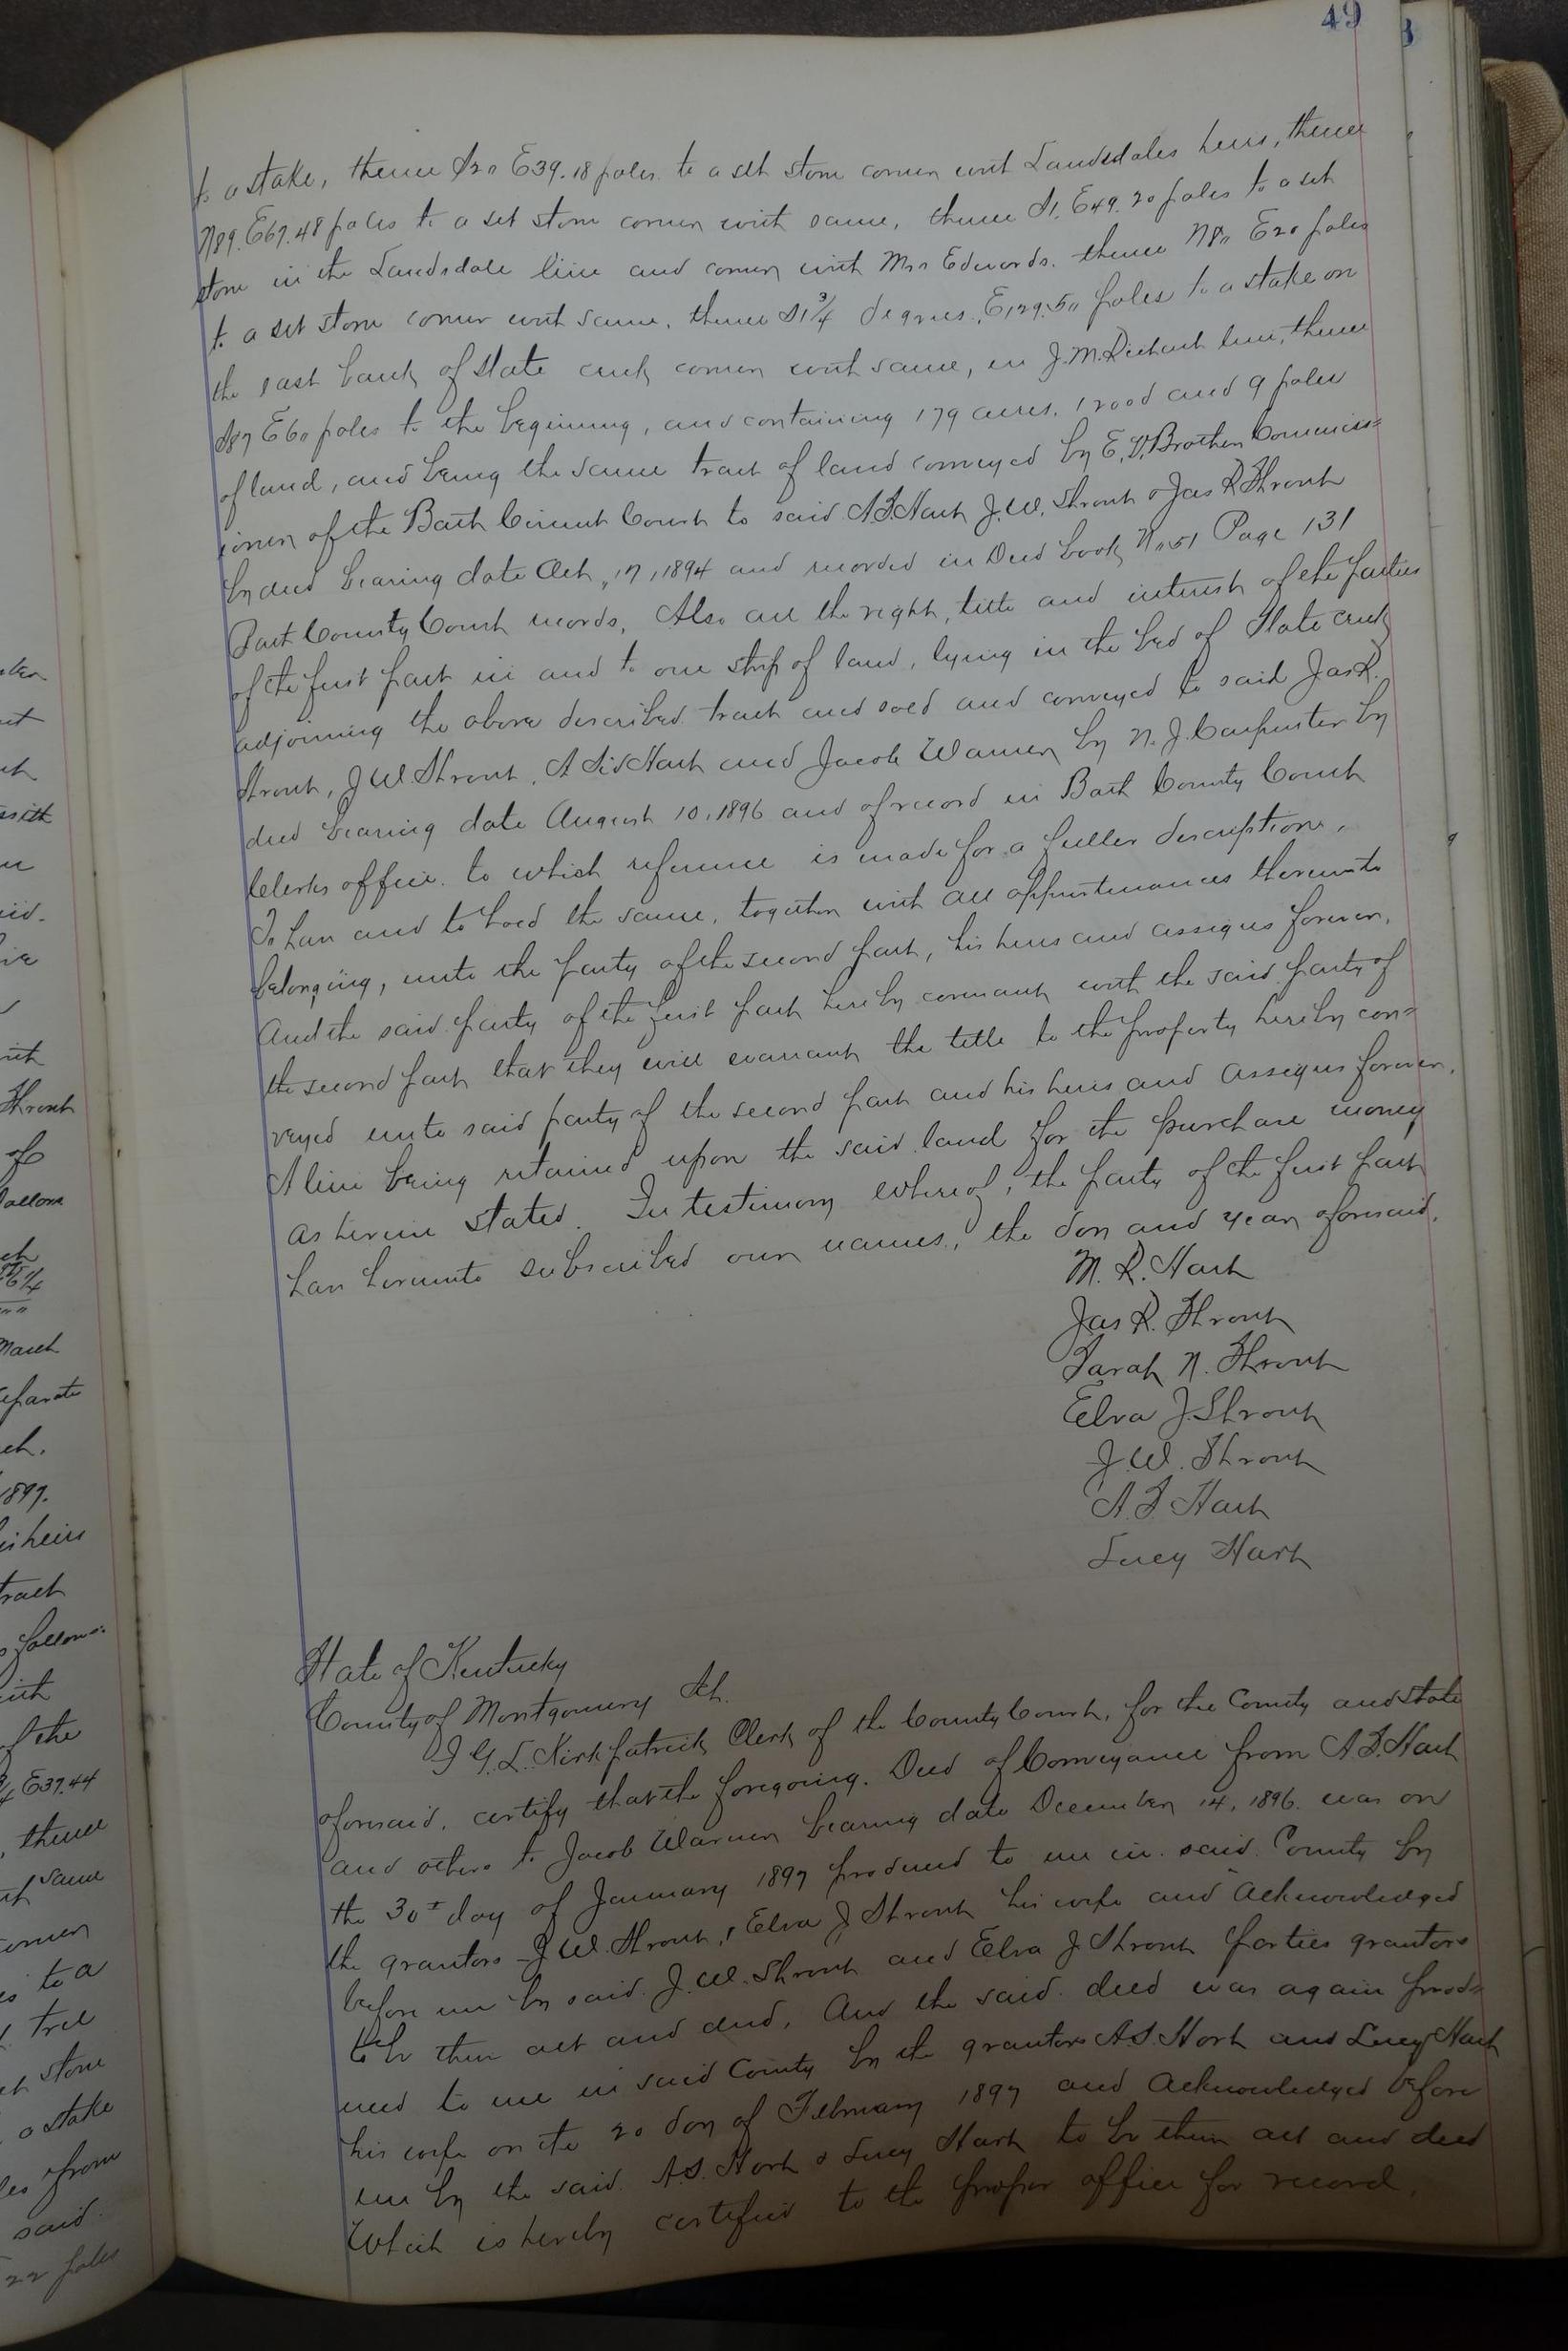 49
to a stake, thence S20 E39.18 poles to a set stone corner with Landsdales heirs, thence
N89.E67.48 poles to a set stone corner with same, thence S1.E49.20 poles to a set
stone in the Landsdale line and corner with Mrs Edwards. thence N80 E20 poles
to a set stone corner with same, thence S1 3/4 degrees, E129.50 poles to a stake on
the east bank of Slate creek corner with same, in J.M. line, thence
S87 E60 poles to the beginning, and containing 179 acres. 1 rood and 9 poles
of land, and being the same tract of land conveyed by E.V. Brother Commiss=
ioner of the Bath Circuit Court to said A.S. Hart J.W. Shrout & Jas R Shrout
by deed bearing date Oct 17, 1894 and recorded in Deed book No 51 Page 131
Bath County Court records, Also all the right, title and interest of the parties
of the first part in and to one strip of land, lying in the bed of Slate creek
adjoining the above described tract and sold and conveyed to said Jas R.
Shrout, J W Shrout, A Sid Hart and Jacob Warner by N. J. Carpenter by
deed bearing date August 10, 1896 and of record in Bath County Court
Clerks office. to which reference is made for a fuller description.
To have and to hold the same, together with all appurtenances thereunto
belonging, unto the party of the second part, his heirs and assigns forever.
And the said party of the first part hereby covenant with the said party of
the second part that they will warrant the title to the property hereby con=
veyed unto said party of the second part and his heirs and assigns forever.
A lien being retained upon the said land for the purchase money
as herein stated. In testimony whereof, the party of the first part
have hereunto subscribed our names, the day and year aforesaid.
M. R. Hart
Jas R. Shrout
Sarah N. Shrout
Elva J. Shrout
J. W. Shrout
A. S Hart
Lucy Hart
State of Kentucky
County of Montgomery Sct.
I G. L. Kirkpatrick Clerk of the County Court, for the County and State
aforesaid, certify that the foregoing. Deed of Conveyance from A S. Hart
and others to Jacob Warner bearing date December 14, 1896. was on
the 30t day of January 1897 produced to me in said County by
the grantors J W. Shrout, & Elva J Shrout his wife and acknowledged
before me by said J. W. Shrout and Elva J Shrout parties grantors
to be their act and deed, And the said deed was again prod=
uced to me in said County by the grantors A.S. Hart and Lucy Hart
his wife on the 20 day of February 1897 and acknowledged before
me by the said A.S. Hart & Lucy Hart to be their act and deed
Which is hereby certified to the proper office for record.